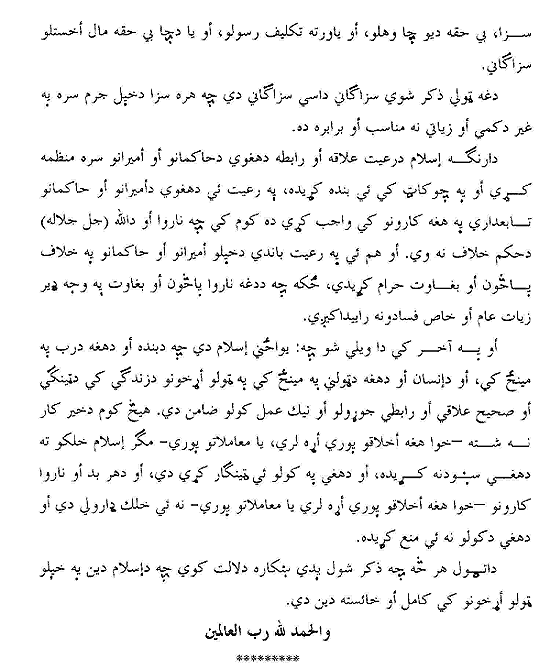 ســزا، بي حقه ديو چا وهلو، أو ياورته تكليف رسولو، أو يا دچا بي حقه مال أخستلو
سزاګاني.
دغه ټولي ذكر شوي سزاګاني داسي سزاګاني دي چه هره سزا دخپل جرم سره په
غير دكمي أو زياتي نه مناسب أو برابره ده.
دارنګــه إسلام درعيت علاقه أو رابطه دهغوي دحاكمانو أو أميرانو سره منظمه
كــړي أو په چوكاټ كي ئي بنده كړيده، په رعيت ئي دهغوي دأميرانو أو حاكمانو
تــابعداري په هغه كارونو كي واجب كړي ده كوم كي چه ناروا أو دالله (جل جلاله)
دحكم خلاف نه وي. أو هم ئي په رعيت باندي دخپلو أميرانو أو حاكمانو په خلاف
پــاڅون أو بغــاوت حرام كړيدي، ځكه چه ددغه ناروا پاڅون أو بغاوت په وجه ډير
زيات عام أو خاص فسادونه راپيداكيږي.
أو پــه آخــر كي دا ويلي شو چه: يواځني إسلام دي چه دبنده أو دهغه درب په
مينځ كي، أو دإنسان أو دهغه دټولني په مينځ كي په ټولو أړخونو دزندګي كي دټينګي
أو صحيح علاقي أو رابطي جوړولو أو نيك عمل كولو ضامن دي. هيڅ كوم دخير كار
نــه شــته –خوا هغه أخلاقو پوري أړه لري، يا معاملاتو پوري– مګر إسلام خلكو ته
دهغــي ښــودنه كــړيده، أو دهغي په كولو ئي ټينګار كړي دي، أو دهر بد أو ناروا
كارونو –خوا هغه أخلاقو پوري أړه لري يا معاملاتو پوري– نه ئي خلك ډارولي دي أو
دهغي دكولو نه ئي منع كړيده.
داټــول هر څه چه ذكر شول پدي ښكاره دلالت كوي چه دإسلام دين په خپلو
ټولو أړخونو كي كامل أو خائسته دين دي.
والحمد لله رب العالمين
*********